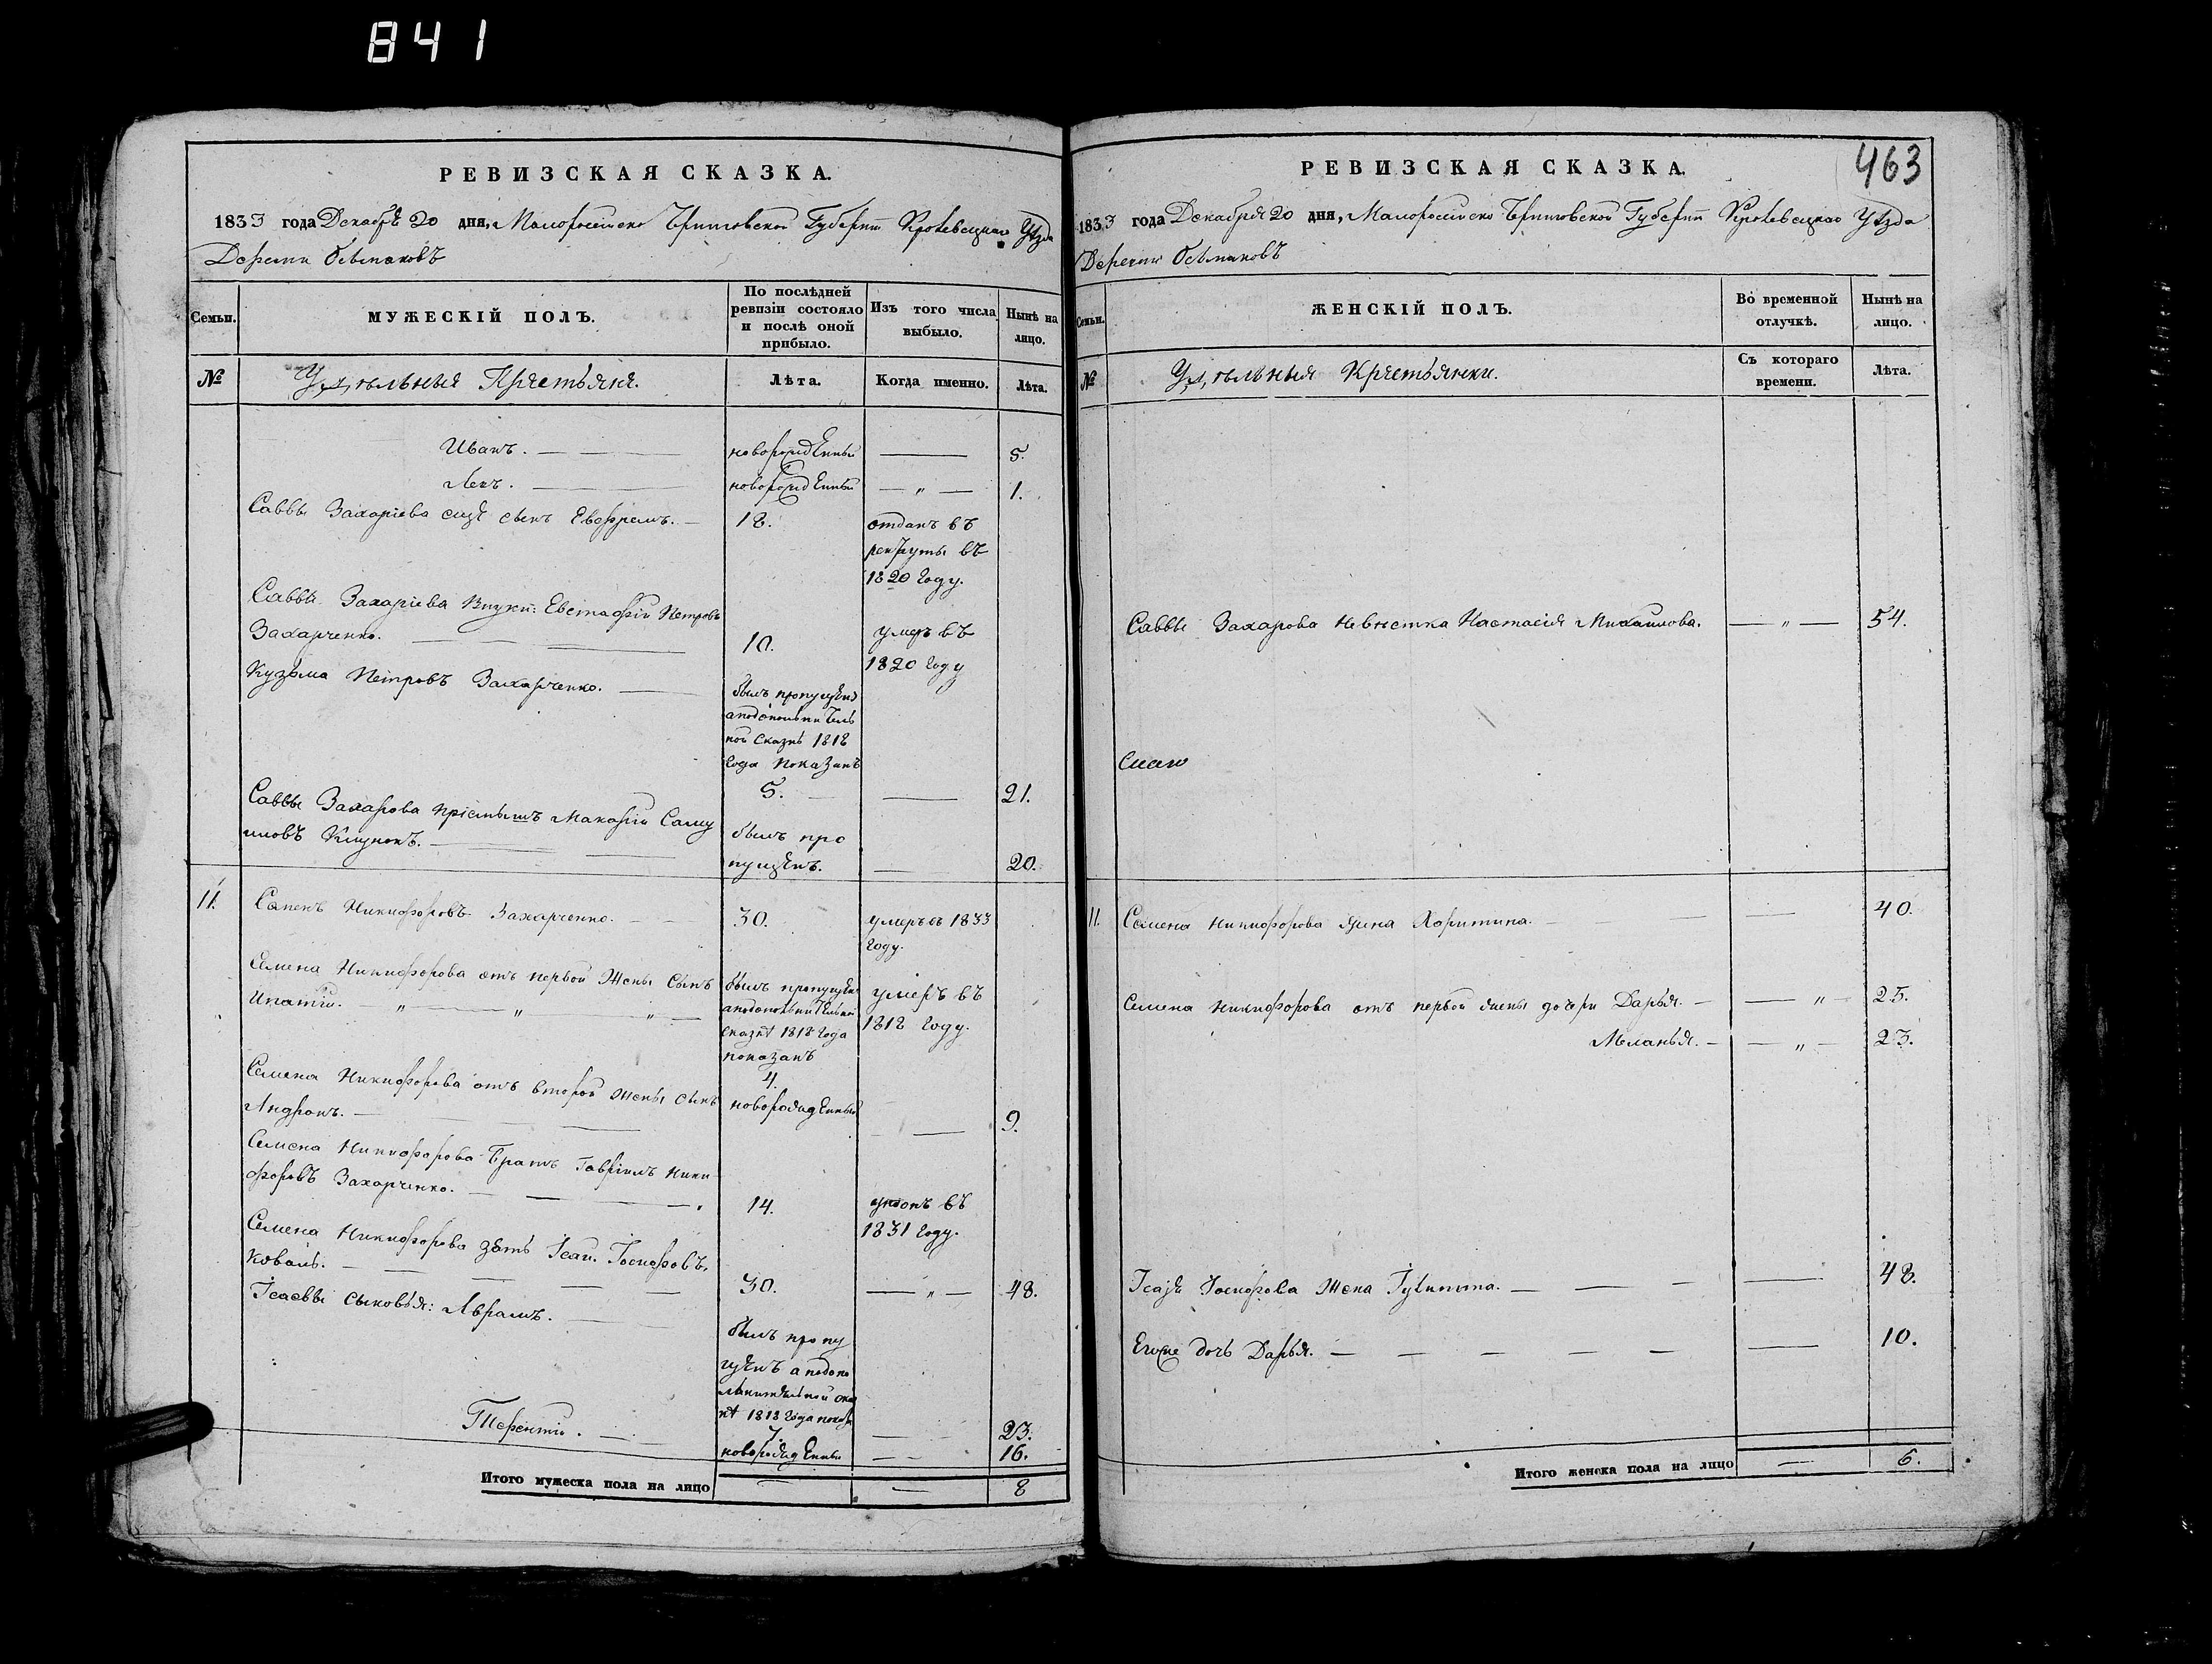 841
РЕВИЗСКАЯ СКАЗКА.
1833 года Декабря 20 дня, Малоросійско Черниговской Губерніи Кролевецкаго Уѣзда
Деревни Осьмаковъ
Семьи.
МУЖЕСКІЙ ПОЛЪ.
По послѣдней ревизіи состояло и послѣ оной прибыло.
Изъ того числа выбыло.
Нынѣ на лицо.
№
Удѣльныя Крестьяня.
Лѣта.
Когда именно.
Лѣта.
Иванъ. — новорожденный — 5.
Левъ. — новорожденный — " — 1.
Саввы Захаріева сынъ Евфремъ. — 18. отданъ въ
рекруты въ
1820 году.
Саввы Захаріева Внуки: Евстафій Петровъ
Захарченко. — 10. умеръ въ
1820 году
Кузьма Петровъ Захарченко. — былъ пропущенъ
а подополнитель
ной сказкѣ 1818
года показанъ
5. — 21.
Саввы Захарова пріемышъ Макарій Саму
иловъ — былъ про
пущенъ. — 20.
11. Семенъ Никифоровъ Захарченко. — 30. умеръ въ 1833
году.
Семена Никифорова отъ первой Жены Сынъ былъ пропущен умеръ въ
Ипатій. " — " — " — а подополнительной 1818 году.
сказкѣ 1818 года
показанъ
4.
Семена Никифорова отъ второй жены сынъ новорожденный
Андронъ. — 9.
Семена Никифорова Братъ Гавріилъ Ники
форовъ Захарченко. — 14. въ
1831 году.
Семена Никифорова зять Ісаи Іосифовъ
Коваль. — 30. — " — 48.
Ісаевы сыновья: Аврамъ. — былъ пропу
щенъ а подопо
лнительной ска
кѣ 1818 года показ
7. — 23.
Терентій. — новорожденный — 16.
Итого мужеска пола на лицо — — 8
463
РЕВИЗСКАЯ СКАЗКА.
1833 года Декабря 20 дня, Малоросійско Черниговской Губерніи Кролевецкаго Уѣзда
Деревни Осьмаковъ
Семьи.
ЖЕНСКІЙ ПОЛЪ.
Во временной отлучкѣ.
Нынѣ на лицо.
№
Удѣльныя Крестьянки.
Съ котораго времени.
Лѣта.
Саввы Захарова невѣстка Настасія Михайлова. — " — 54.
11. Семена Никифорова жена Харитина. — 40.
Семена Никифорова отъ первой жены дочери Дарья. — " — 25.
Меланья. — " — 23.
Ісаіе Іосифова Жена — 48.
Егоже дочь Дарья. — 10.
Итого женска пола на лицо — 6.